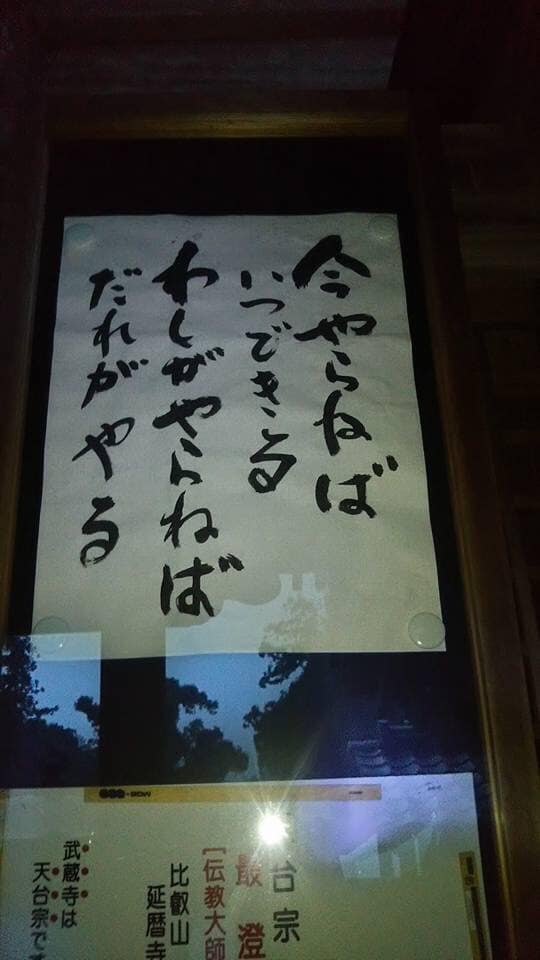 今やらねば
いつできる
わしがやらねば
だれがやる
台宗
最澄
[伝教大師
比叡山
延暦寺
武蔵寺は
天台宗です